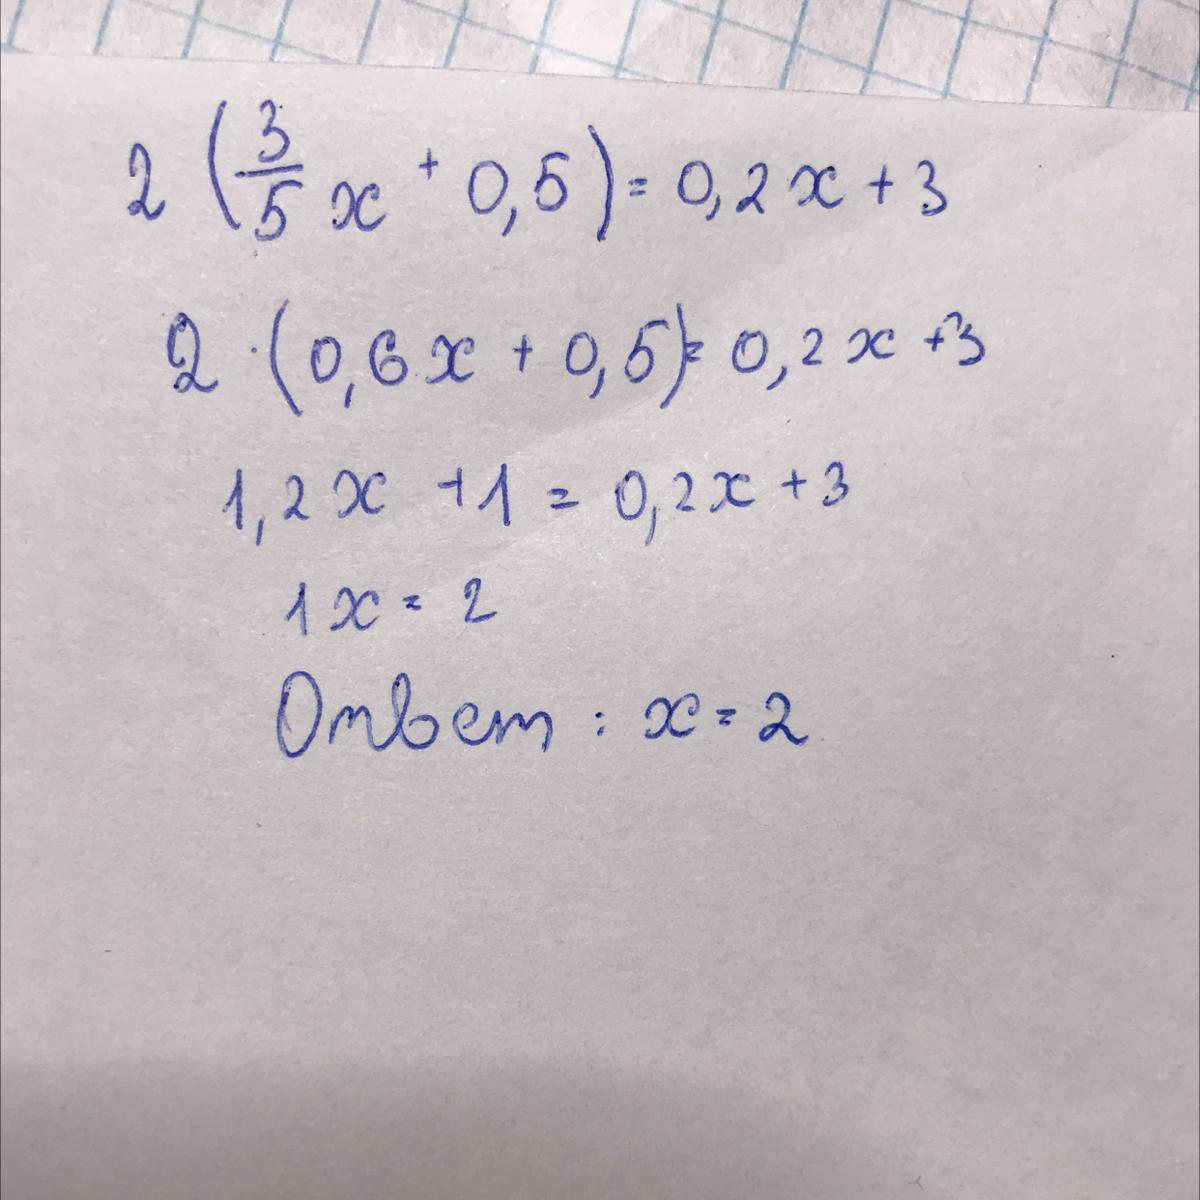 2 (3/5 x + 0,5) = 0,2x + 3
2 · (0,6x + 0,5) = 0,2x + 3
1,2x + 1 = 0,2x + 3
1x = 2
Ответ : x = 2